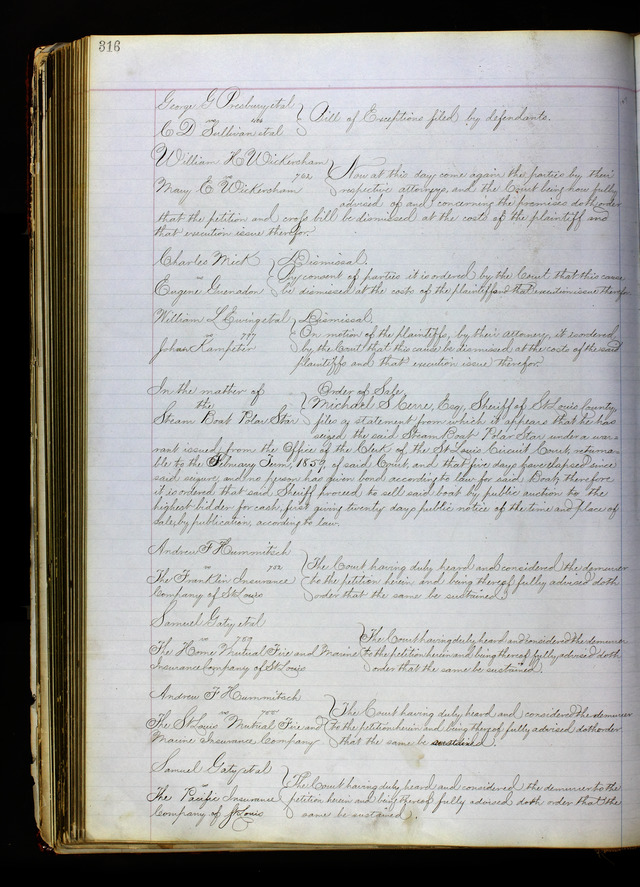 316
George G Presbury et al
vs
C D Sullivan et al
Bill of Exceptions filed by defendants.
William H Wickersham
vs 702
Mary E Wickersham
Now at this day come again the parties by their
respective attorneys, and the Court being now fully
advised of and concerning the premises doth order
that the petition and cross bill be dismissed at the costs of the plaintiff and
that execution issue therefor.
Charles Mick
vs
Eugene Grenadon
Dismissal.
By consent of parties it is ordered by the Court that this cause
be dismissed at the costs of the plaintiff and that execution issue therefor
William L Ewing et al
vs
Johan Kampeter
Dismissal
On motion of the plaintiffs, by their attorney, it is ordered
by the Court that this cause be dismissed at the costs of the said
plaintiffs and that execution issue therefor.
In the matter of
the
Steam Boat Polar Star
Order of Sale,
Michael S Cerre, Esq, Sheriff of St Louis County,
files a statement from which it appears that he has
seized the said Steam Boat Polar Star under a war
rant issued from the Office of the Clerk of the St Louis Circuit Court, returna
ble to the February Term, 1857, of said Court, and that five days have elapsed since
said seizure, and no person has given bond according to law for said Boat, therefore
it is ordered that said Sheriff proceed to sell said boat by public auction to the
highest bidder for cash, first giving twenty days public notice of the time and place of
sale, by publication, according to law.
Andrew F Hummitsch
vs 752
The Franklin Insurance
Company of St Louis
The Court having duly heard and considered the demurrer
to the petition herein and being thereof fully advised doth
order that the same be sustained.
Samuel Gaty et al
vs 759
The Home Mutual Fire and Marine
Insurance Company of St Louis
The Court having duly heard and considered the demurrer
to the petition herein and being thereof fully advised doth
order that the same be sustained.
Andrew F Hummitsch
vs
The St Louis Mutual Fire and
Marine Insurance Company
The Court having duly heard and considered the demurrer
to the petition herein and being thereof fully advised doth order
that the same be sustained.
Samuel Gaty et al
vs
The Pacific Insurance
Company of St Louis
The Court having duly heard and considered the demurrer to the
petition herein and being thereof fully advised doth order that the
same be sustained.